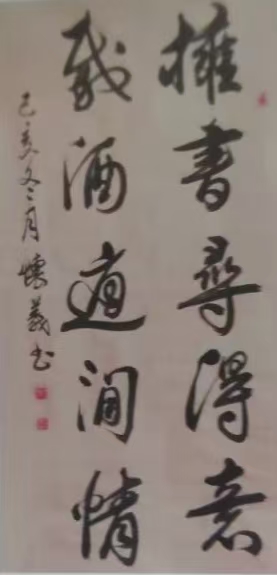 擁書尋得意
載酒適閒情
己亥冬月懐義书